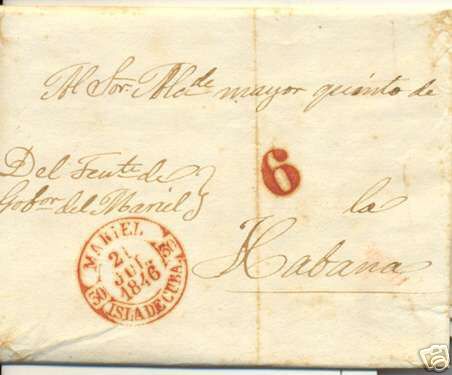 Al Sor. Alcde mayor quinto de
6
Del Tente de
Gobor del Mariel
la
Habana
MARIEL
2
JUL
1846
ISLA DE CUBA
30
30